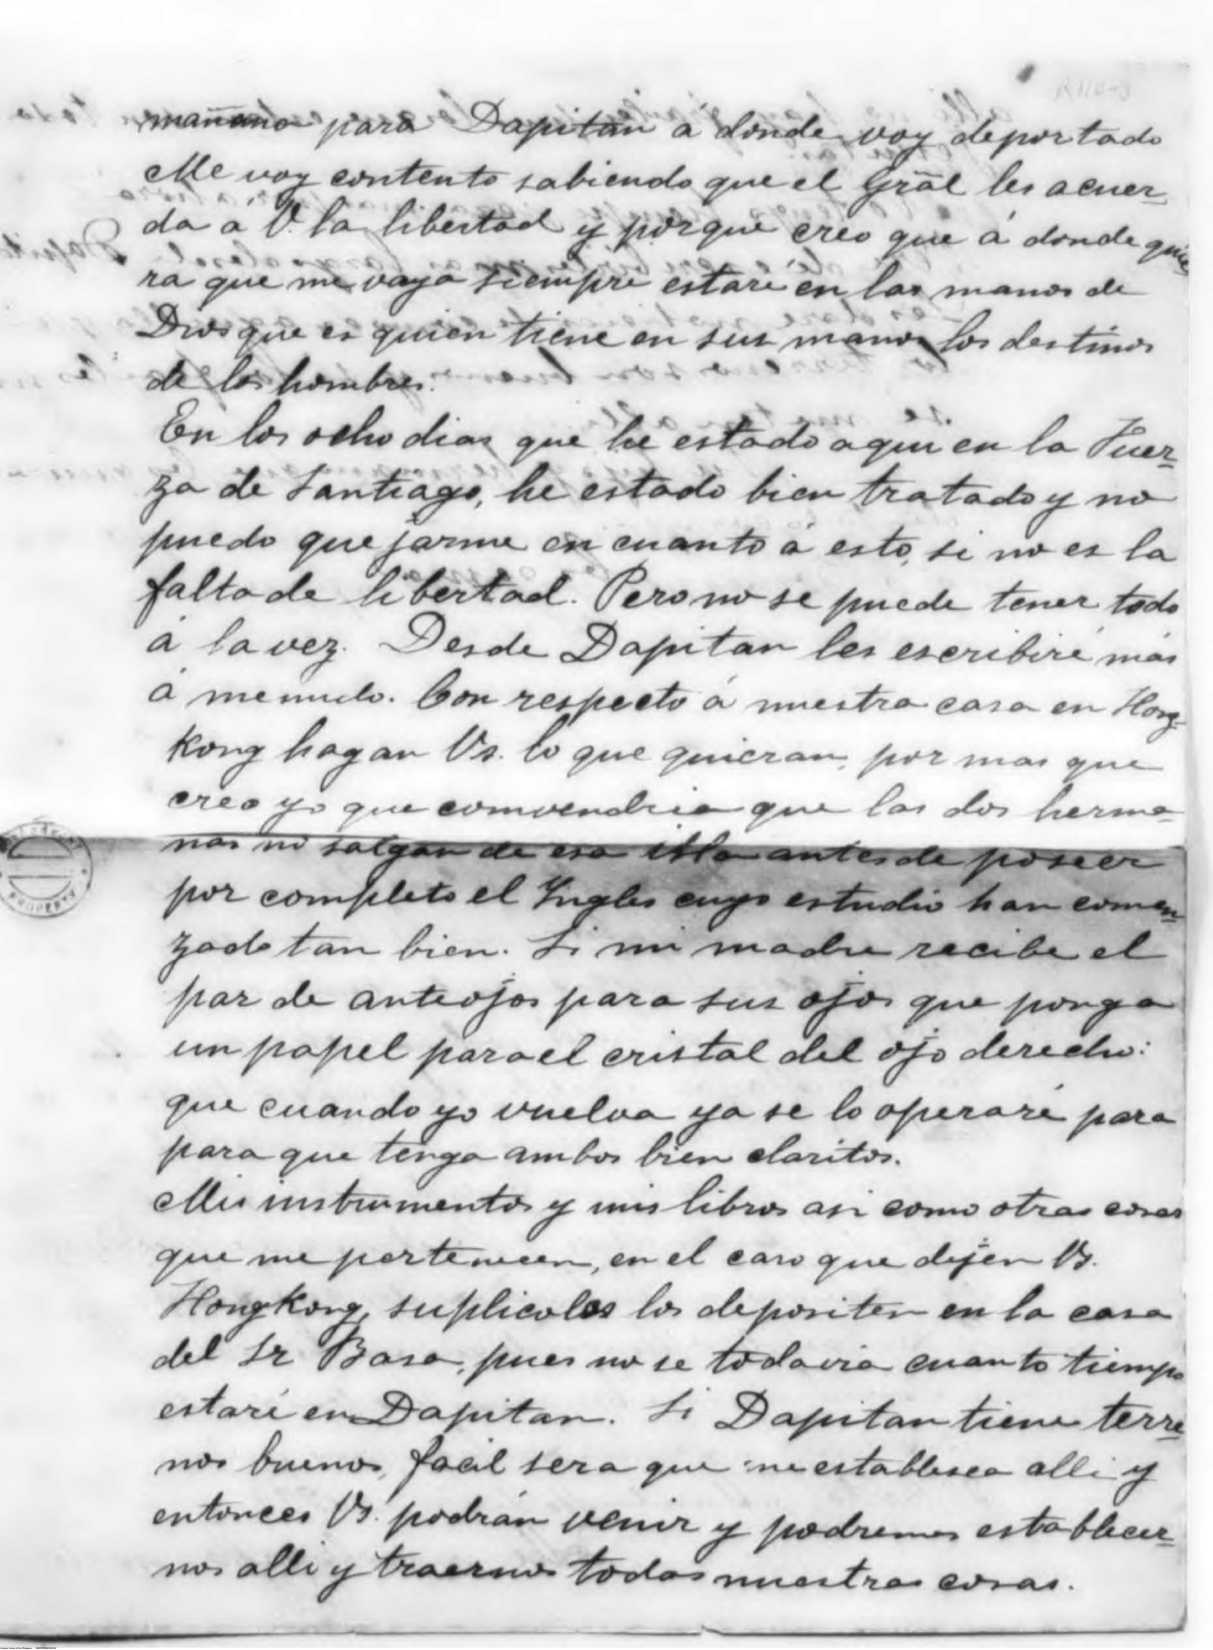 mañana para Dapitan á donde voy deportado
Me voy contento sabiendo que el Gral les acuer-
da á V. la libertad y porque creo que á donde quie-
ra que me vaya siempre estaré en las manos de
Dios que es quien tiene en sus manos los destinos
de los hombres.
En los ocho dias que he estado aqui en la Fuer-
za de Santiago, he estado bien tratado y no
puedo quejarme en cuanto á esto, si no es la
falta de libertad. Pero no se puede tener todo
á la vez. Desde Dapitan les escribiré más
á menudo. Con respecto á nuestra casa en Hong-
kong hagan Vs. lo que quieran, por mas que
creo yo que convendria que las dos herma-
nas no salgan de esa isla antes de poseer
por completo el Ingles cuyo estudio han comen-
zado tan bien. Si mi madre recibe el
par de anteojos para sus ojos que ponga
un papel para el cristal del ojo derecho:
que cuando yo vuelva ya se lo operaré para
para que tenga ambos bien claritos.
Mis instrumentos y mis libros asi como otras cosas
que me pertenecen, en el caso que dejen Vs.
HongKong, suplicoles los depositen en la casa
del Sr Basa, pues no se todavia cuanto tiempo
estaré en Dapitan. Si Dapitan tiene terre-
nos buenos, facil sera que me establesca alli y
entonces Vs. podrán venir y podremos establecer-
nos alli y traernos todas nuestras cosas.
PROPERTY